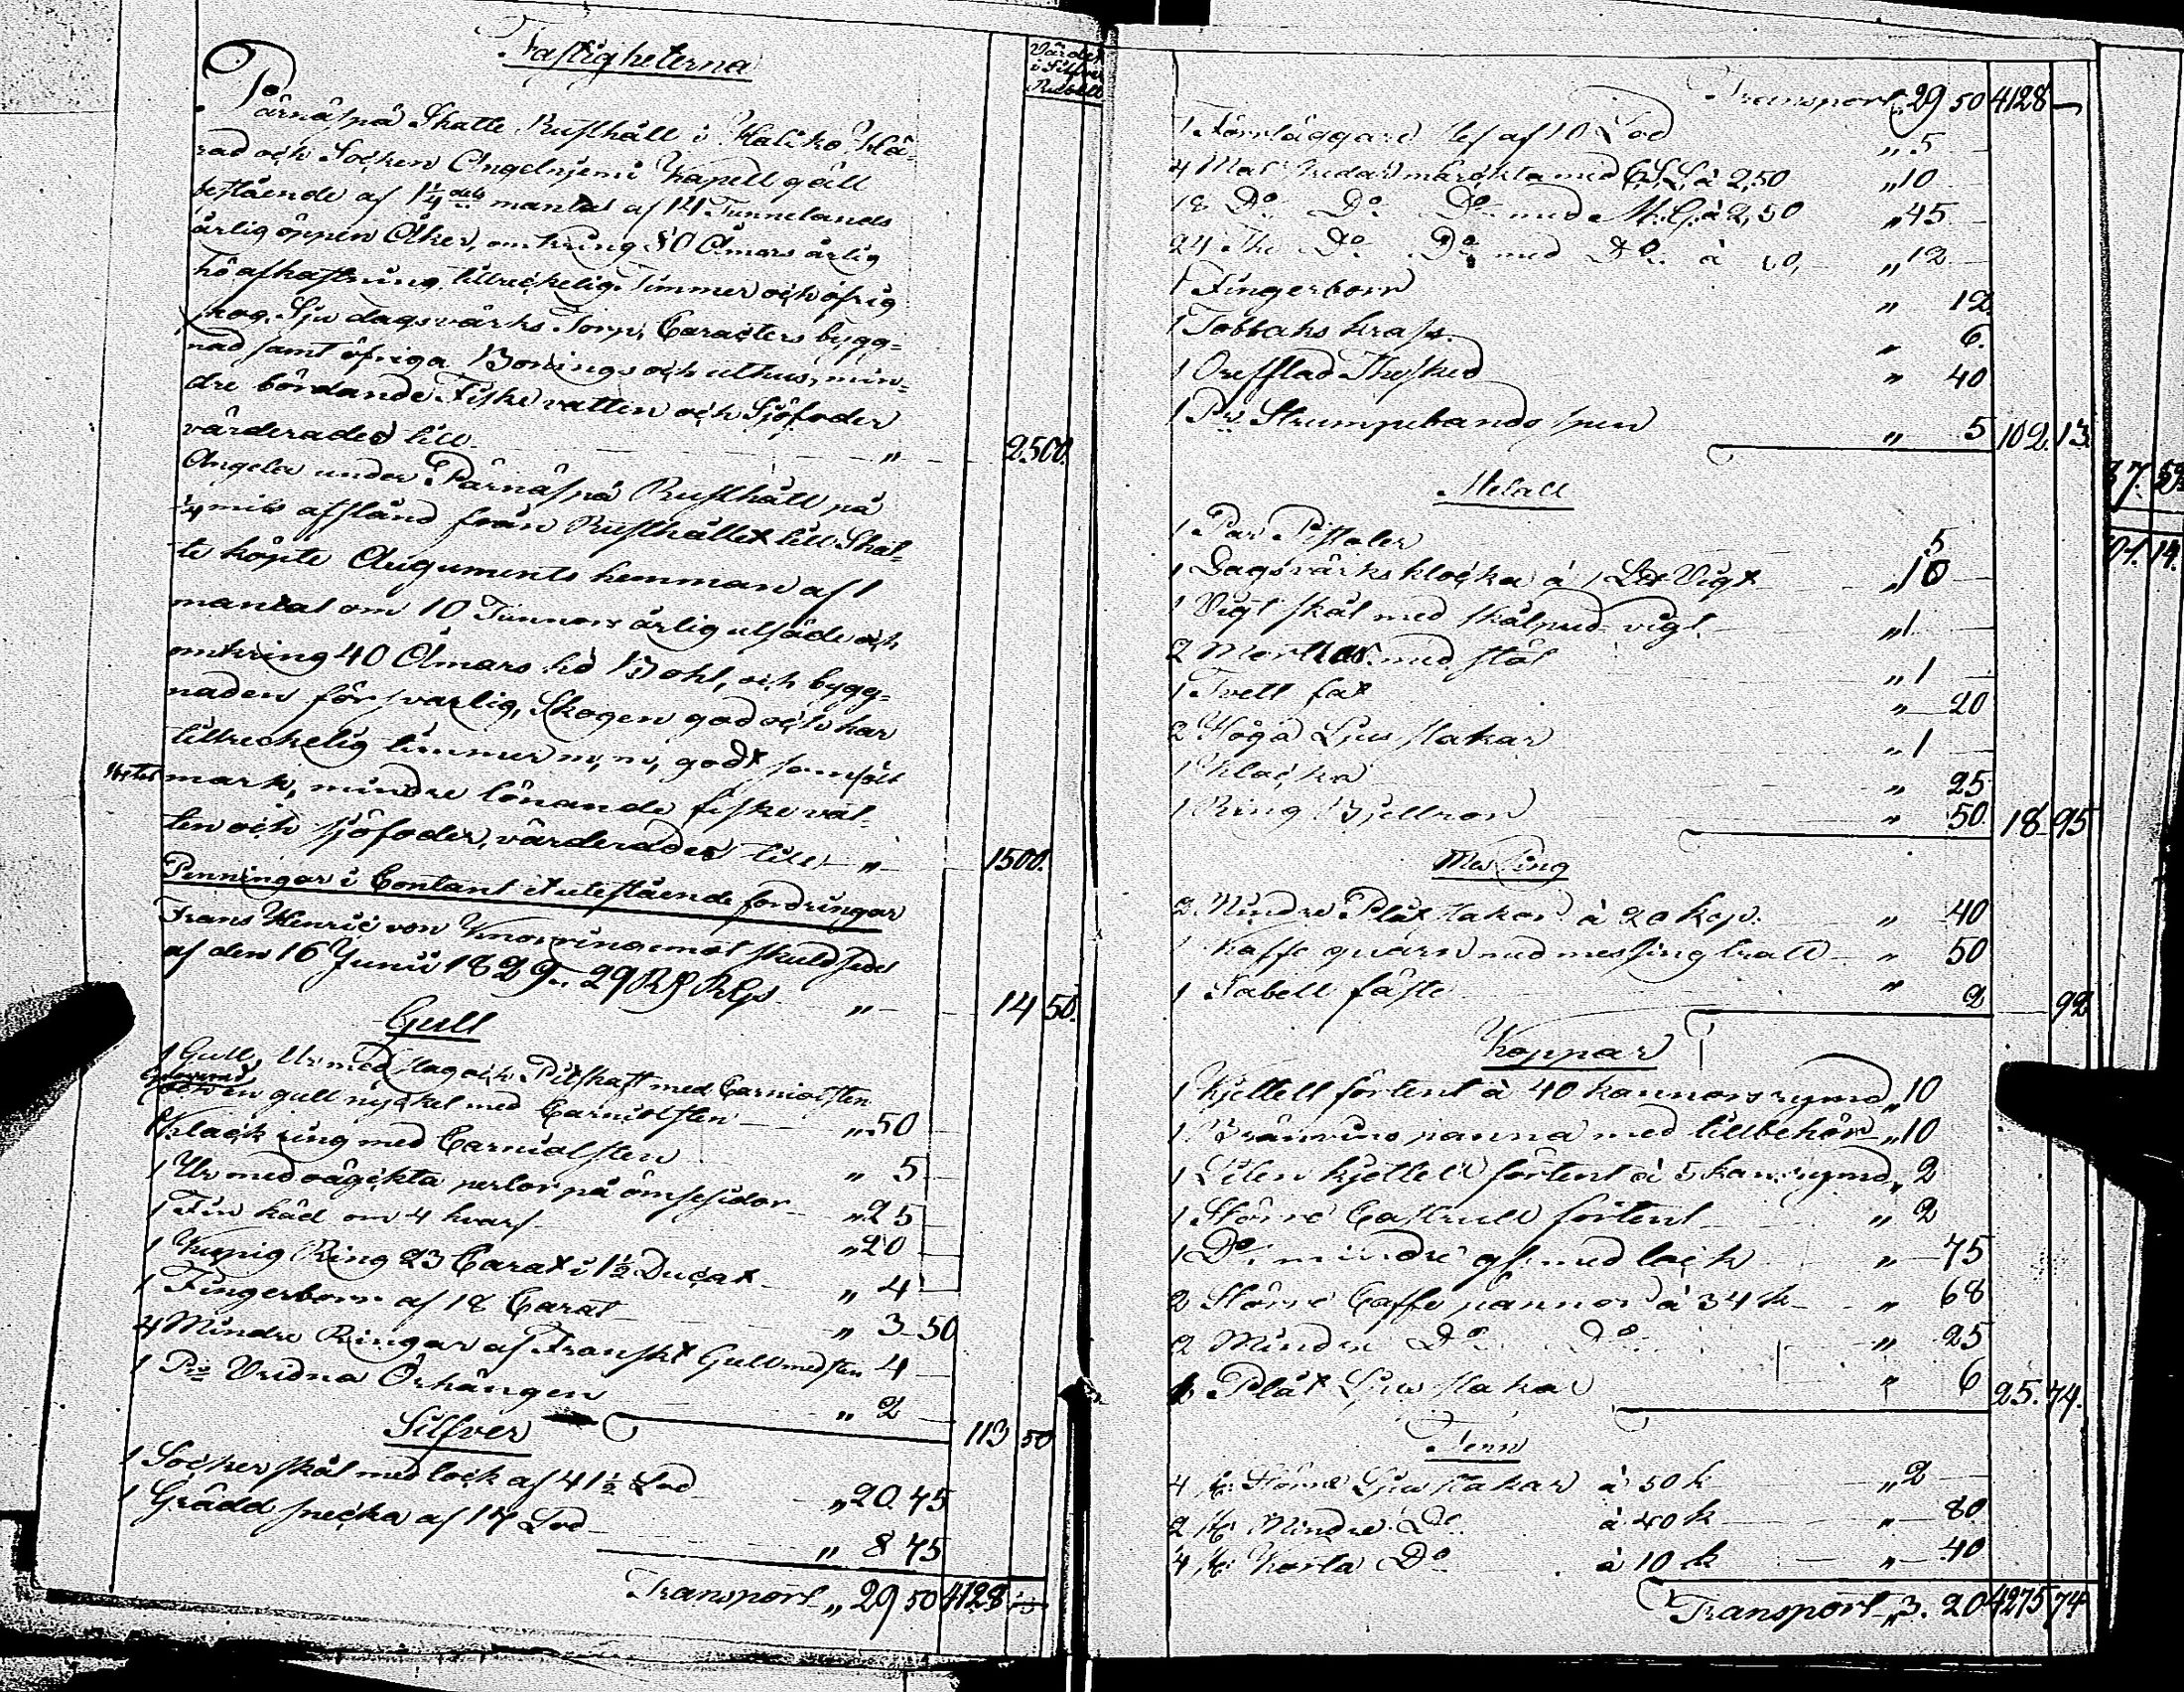 Fastigheterna
Värdet
i Silfver
Rubell
Pärnäspä Skatte Rusthåll i Haliko Hä-
rad och Socken Angelniemi Kapell gäll
bestående af 1 1/4 dels mantal af 14 Tunnelands
årlig öppen Åker, omkring 80 Åmars årlig
höafkastning, tillreckelig Timmer och öfrig
skog. Sju dagsvärks Torp, Caracters bygg=
nad samt öfriga Bonings och uthus, min=
dre bördande Fiske vatten och Sjöfoder
värderades till " 2500.
Angela under Pärnäspä Rusthåll på
1/4 mils afstånd från Rusthållet till Skat=
te köpte Auguments hemman af 1
mantal om 10 Tunnors årlig utsäde och
omkring 40 Åmars hö Bohl, och bygg=
naden försvarlig, Skogen god och har
tillreckelig timmer m, m, godt
mark, mindre lönande fiske vat-
ten och sjöfoder, värderades till " 1500.
Penningar i Contant et utestående fordringar
Frans Henric von Knorring emot skuld sedel
af den 16 Junii 1829 29 R? RGs " 14 50.
Gull
1 Gull Ur med slag och Pitskaft med Carniolsten
och en gull nyckel med Carniolsten " 50
1 Klack ring med Carniolsten " 5
1 Ur med oägekta perlor på ömse sidor " 25
1 Fin käd om 4 hvarf " 20
1 Kupig Ring 23 Carat i 1 1/2 Ducat " 4
1 Fingerborr af 18 Carat " 3 50
4 Mindre Ringar af Franskt Gull med sten 4
1 Pr Vridna Örhängen " 2
113 50
Silfver
1 Socker skål med lock af 41 1/2 Lod " 20 75
1 Grädd snecka af 17 Lod " 8 75
Transport " 29 50 4128
Transport " 29 50 4128 —
1 Förrläggare Sl af 10 Lod " 5
4 Mat Skedar märckta med C.S.L. à 2,50 " 10
18 Do Do Do med M. G. à 2,50 " 45
24 The Do Do med Do à 50, " 12
1 Fingerborr " 12
1 Tobbaks krats. " 6.
1 Oresflad Thesked " 40
1 Pr Strumpebands spen " 5 102. 13.
Metall
1 Par Pistoler 5
1 Dagsvärks klocka à 1 Ld Vigt " 10
1 Vigt skål med skålpund vigt " 1
2 Mortlar med stöt " 1
1 Tvett fat " 20
2 Höga Ljus stakar " 1
1 Klocka " 25
1 Ring Bjellror " 50 18 95
Messing
2 Mindre Plåt stakar à 20 kop. " 40
1 Kaffe quarn med messing tratt " 50
1 Sabell fäste " 2 92
Koppar
1 Kjettell förtent à 40 kannors rymd " 10
1 Bränvins panna med tillbehör " 10
1 Liten kjettell förtent à 5 kan: rymd " 2
1 Större Castrull förtent " 2
1 Do mindre gl. med lock " 75
2 Större Caffe pannor à 34 k " 68
2 Mindre Do Do " 25
Plåt Ljus stakar " 6 25. 74.
Tenn
4 st: Större Ljus stakar à 50 k " 2
2 st: Mindre Do à 40 k " 80
4 st: Korta Do à 10 k " 40
Transport " 3. 20 4275 74